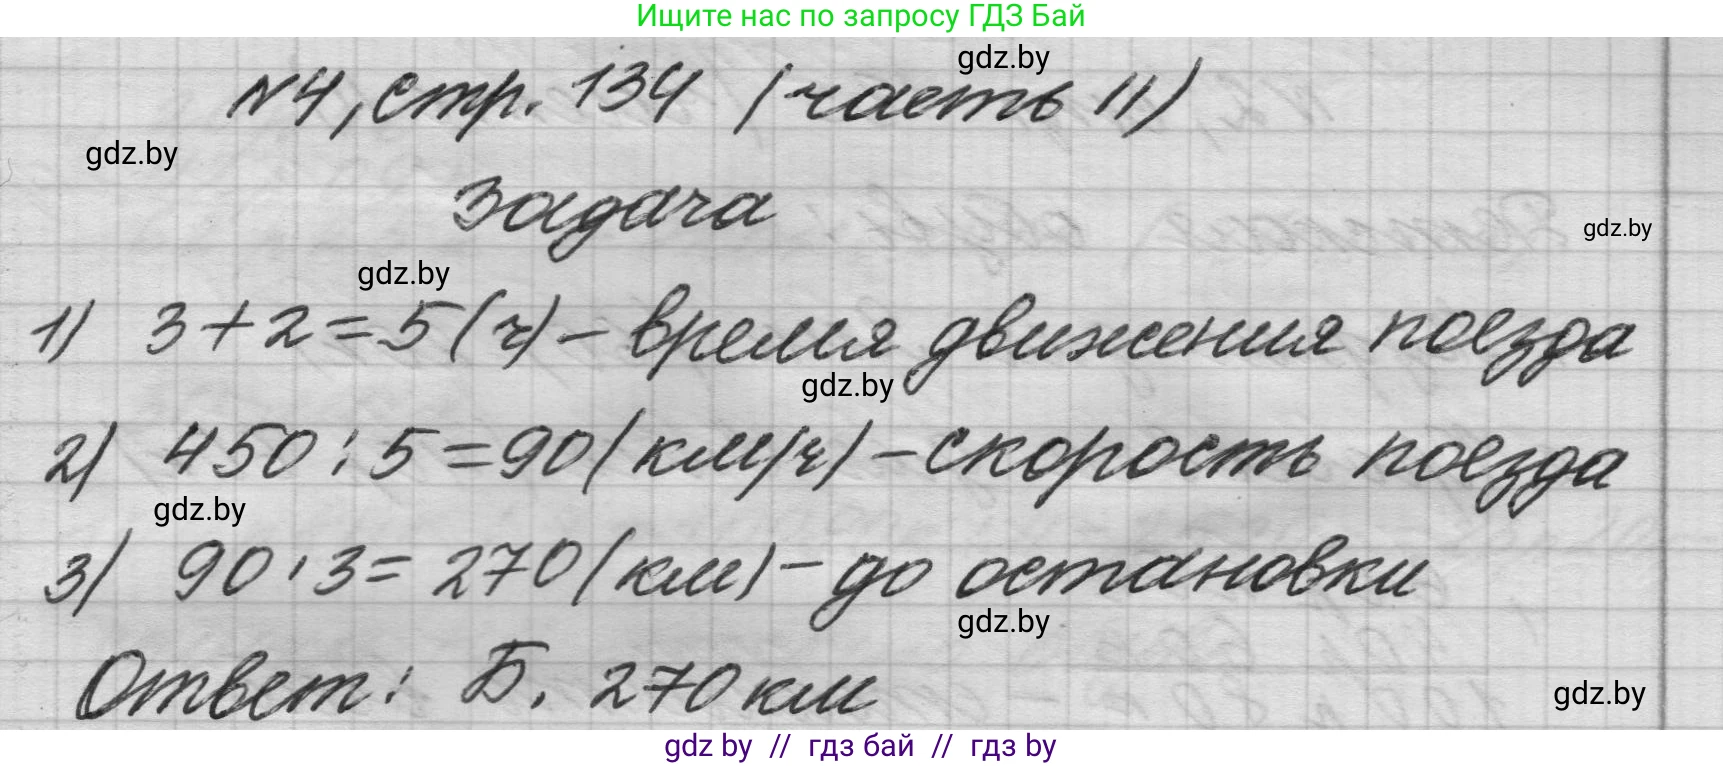 Ищите нас по запросу ГДЗ Бай
gdz.by
№4, стр. 134 (часть II)
gdz.by
Задача
gdz.by
gdz.by
1) 3+2=5(ч) – время движения поезда
gdz.by
2) 450:5=90(км/ч) – скорость поезда
gdz.by
3) 90·3=270(км) – до остановки
gdz.by
Ответ: Б. 270 км
gdz.by
gdz by // гдз бай // гдз by